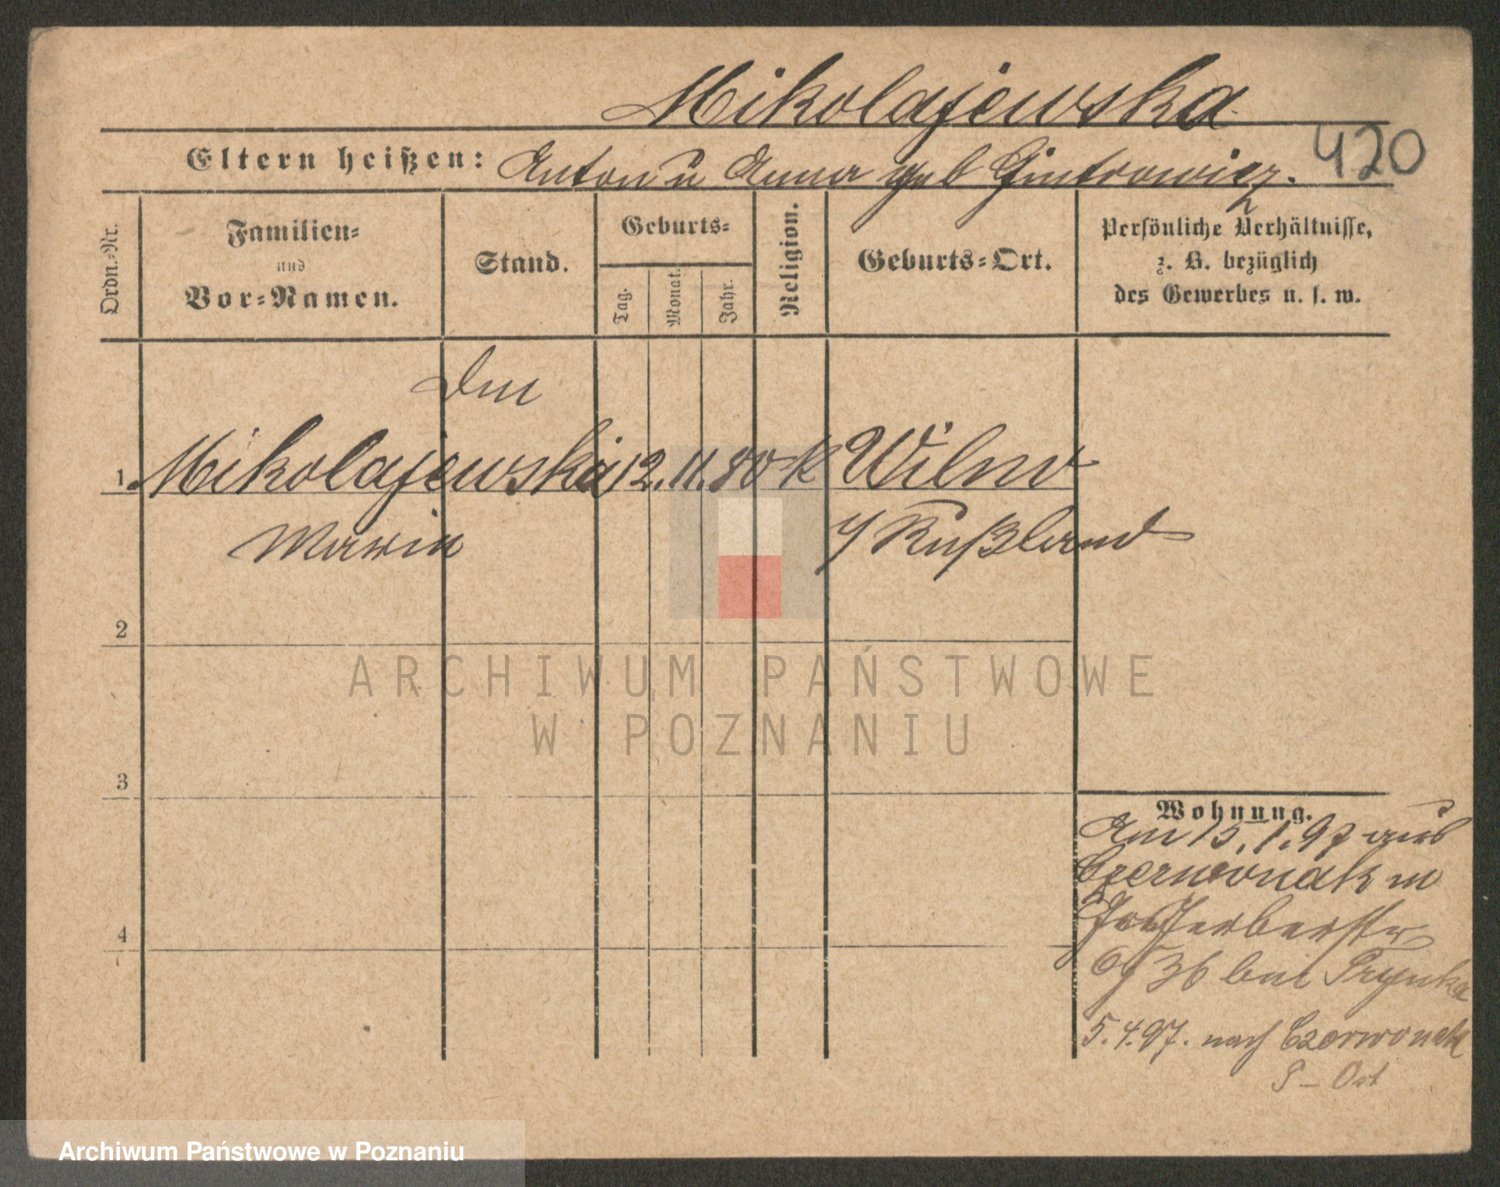 Mikolajewska
Eltern heißen: Anton u Anna geb Gintrowicz.
420
Ordn.-Nr.
Familien-
und
Vor-Namen.
Stand.
Geburts-
Tag.
Monat.
Jahr.
Religion.
Geburts-Ort.
Persönliche Verhältnisse,
z. B. bezüglich
des Gewerbes u. s. w.
1 Mikolajewska 12. 11. 80 K Wilno
Maria
Rußland
2
3
4
Wohnung.
Am 15.1.97 aus
Czerwonak in
Gerberstr
36 bei
5.4.97. nach Czerwonak
P - Ost
ARCHIWUM PAŃSTWOWE
W POZNANIU
Archiwum Państwowe w Poznaniu